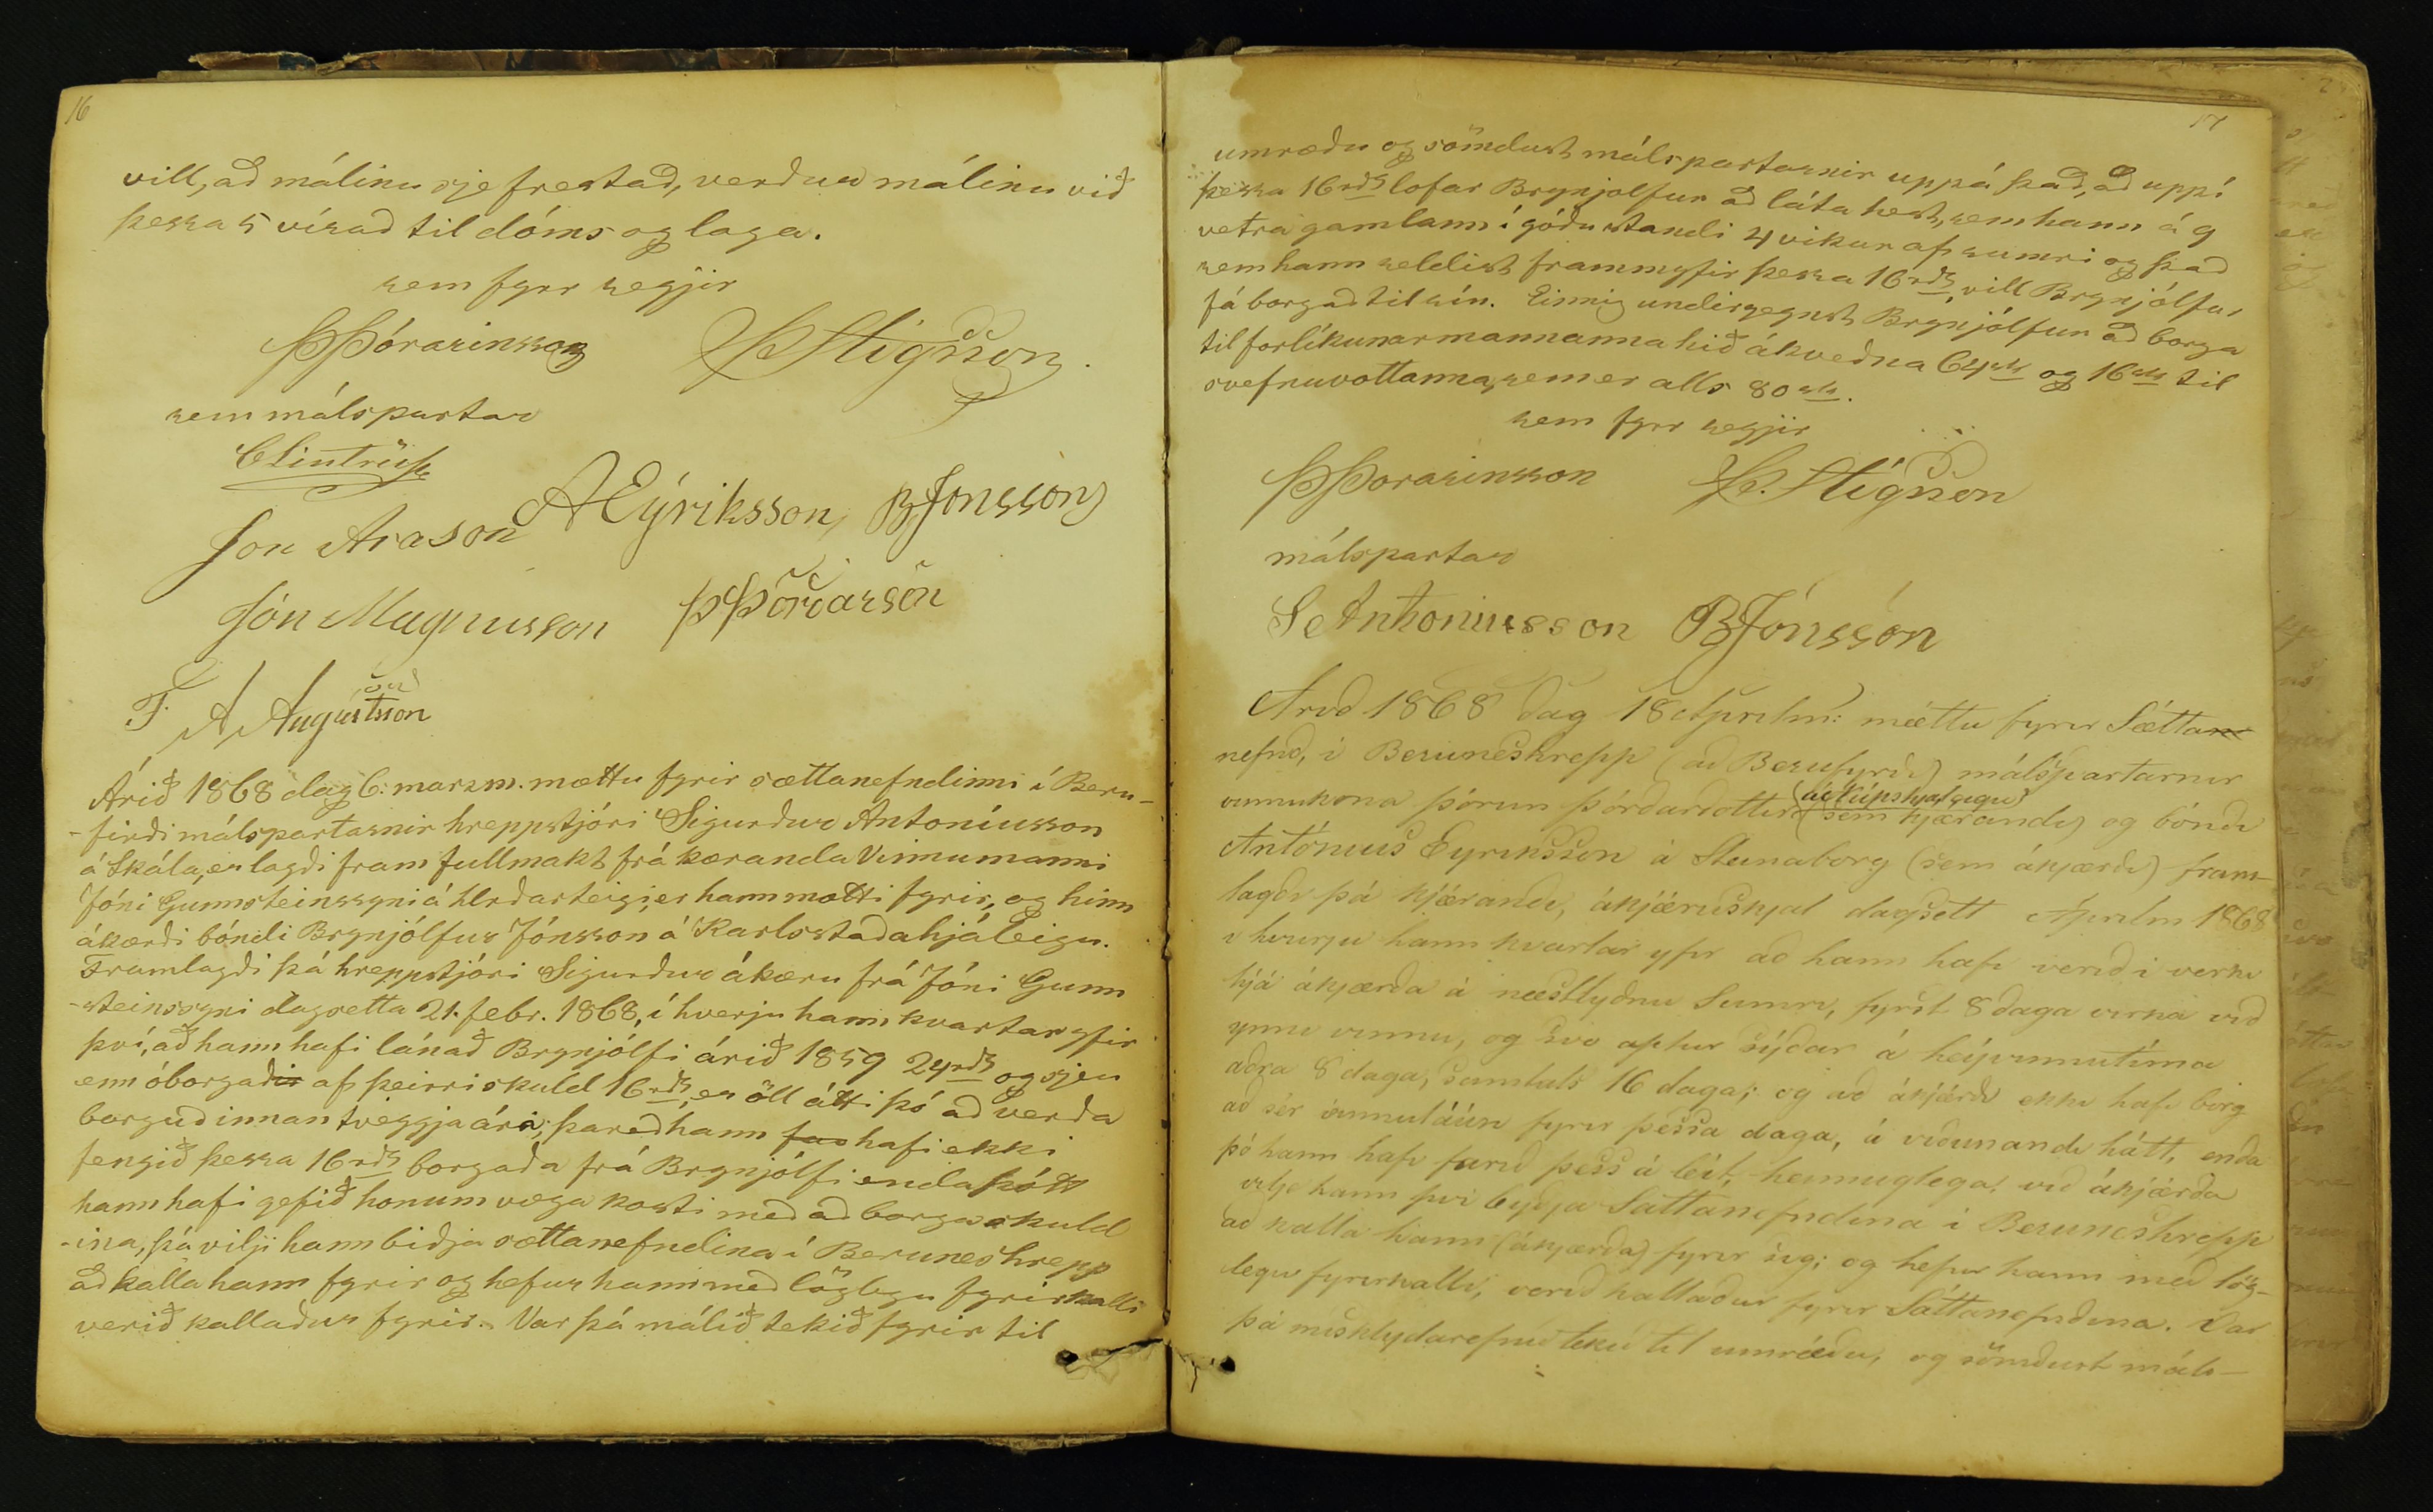 16
vill, að málinu sje frestað, verður málinu við
þessa 5 vísað til dóms og laga.
sem fyrr segjir
ÞÞórarinsson ÞStígsson.
sem málspartar
Jon Arason AEýriksson, BJonsson
Jón Magnusson ÞÞórðarson
F. A Augústsson
Árið 1868 dag 6: marzm. mættu fyrir sættanefndinni í Beru-
-firði málspartarnir hreppstjóri Sigurður Antoníusson
á Skála, er lagði fram fullmakt frá kæranda Vinnumanni
Jóni Gunnsteinssyni á Urðarteigi, er hann mætti fyrir, og hinn
ákærði bóndi Brynjólfur Jónsson á Karlsstaðahjáleigu.
Framlagði þá hreppstjóri Sigurður ákæru frá Jóni Gunn
-steinssyni dagsetta 21. febr. 1868, í hverju hann kvartar yfir
því, að hann hafi lánað Brynjólfi árið 1859 24rd og sjeu
enn óborgaðir af þeirri skuld 16rd, er öll átti þó að verða
borguð innan tveggja ára; þareð hann hafi ekki
fengið þessa 16rd borgaða frá Brynjólfi endaþótt
hann hafi gefið honum væga kosti með að borga skuld
-ina, þá vilji hann biðja sættanefndina í Beruneshrepp
að kalla hann fyrir og hefur hann með löglegu fyrirkalli
verið kallaður fyrir. Var þá málið tekið fyrir til
17
umræðu og sömdust málspartarnir uppá það, að uppí
þessa 16rd lofar Brynjolfur að láta hest, sem hann á 9
vetra gamlann í góðu standi 4 vikur af sumri og það
sem hann seldist frammyfir þessa 16rd, vill Brynjólfur
fá borgað til sín. Einnig undirgegnst Brynjólfur að borga
til forlíkunarmannanna hið ákveðna 64sk og 16sk til
svefnuvottanna, sem er alls 80sk.
sem fyrr segjir
ÞÞorarinsson Þ. Stígsson
málspartar
S Antoniusson BJónsson
Arið 1868 dag 18 Aprilm: mættu fyrir Sætta
nefnd, i Beruneshrepp (að Berufyrði) málspartarnir
vinnukona Þórun Þórðardottir (sem kjærandi) og bóndi
Antóníus Eyriksson á Steinaborg (sem ákjærði) fram-
lagði þá kjærandi, ákjæruskjal dagsett Aprilm 1868
i hverju hann kvartar yfir að hann hafi verið i verki
hjá ákjærða á næstlyðnu Sumri, fyrst 8 daga virka við
ynni vinnu, og svo aptur sýðar á heývinnutíma
aðra 8 daga, samtals 16 daga; og að ákjærði ekki hafi borg
að sér vinnuláún fyrir þessa daga, á viðunandi hátt, enda
þó hann hafi farið þess á leit, heimuglega við ákjærða
vilji hann því byðja Sattanefndina i Beruneshrepp
að kalla hann (ákjærða) fyrir sig; og hefur hann með lög-
legu fyrirkalli, verið kallaður fyrir Sáttanefndina. Var
þá misklyðarefnið tekið til umræðu, og sömdust máls-